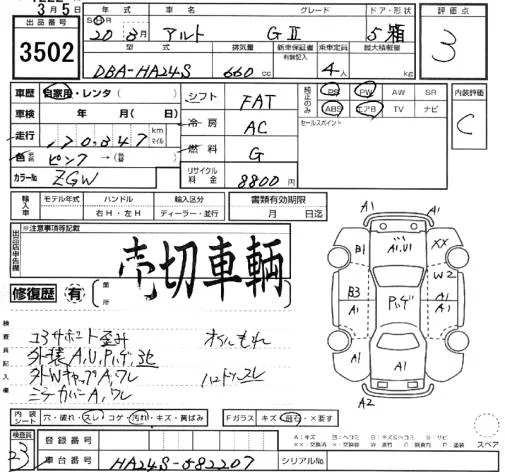 3月5日
出品番号
3502
年式 車名 グレード ドア・形状
20 8月 アルト GⅡ 5 箱
型式 排気量 新車保証書 乗車定員 最大積載量
有類記載
DBA-HA24S 660cc 4人 kg
評価点
3
車歴 自家用・レンタ( )
シフト FAT
純正のみ PS PW AW SR
ABS エアB TV ナビ
内装評価
C
車検 年 月( 日)
冷房 AC
セールスポイント
走行 km マイル
燃料 G
色 ピンク →(替)
リサイクル料金 8800円
カラーNo ZGW
輸入車 モデル年式 ハンドル 輸入区分
右H・左H ディーラー・並行
書類有効期限
月 日迄
出品店申告欄
※注意事項等記載
売切車輌
修復歴 有 箇所
A1 A1
B1 A1,U1 XX
W2
B3 Pハゲ A1
A1 A1
A1
A2
検査員記入欄
コアサポート歪み オイルもれ
外装A,U,Pハゲ,他
外Wキャップ A,ワレ ハンドルスレ
ミラーカバーA,ワレ
内装シート 穴・破れ・スレ・コゲ・汚れ・キズ・黄ばみ
Fガラス キズ・飛石・×要す
A:キズ
スペア
検査員
23
登録番号
車台番号 HA24S-582207 シリアルNo.